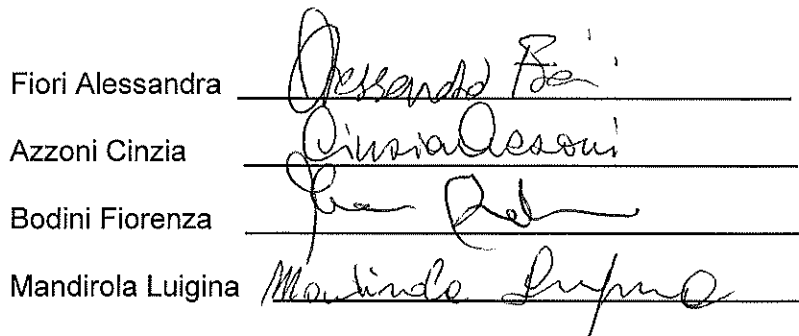 Fiori Alessandra Alessandra Fiori
Azzoni Cinzia Cinzia Azzoni
Bodini Fiorenza
Mandirola Luigina Mandirola Luigina